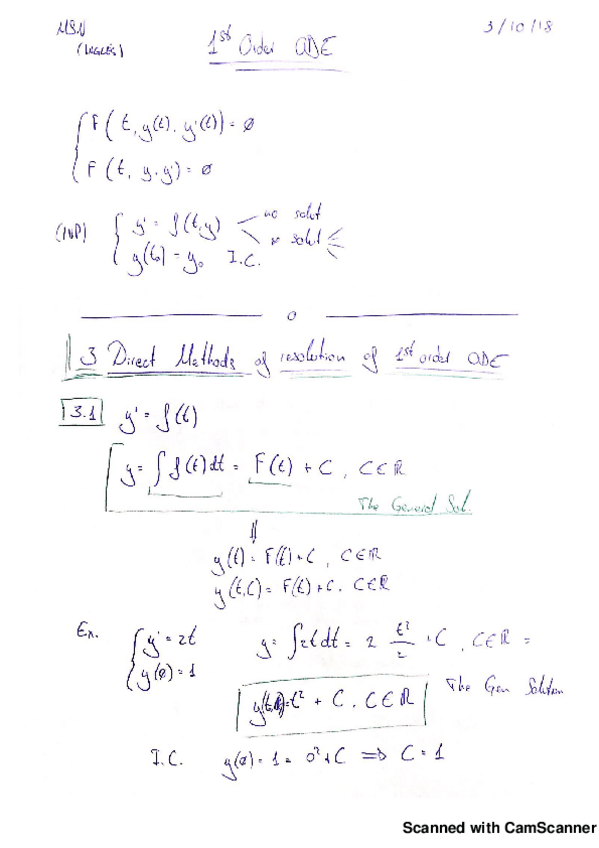 MSN 1st Order ODE 3/10/18
(Inglés)
F(t, y(t), y'(t)) = ø
F(t, y, y') = ø
(IVP) y' = f(t,y) no solut
∞ solut
y(t₀) = y₀ I.C.
o
3 Direct Methods of resolution of 1st order ODE
3.1 y' = f(t)
y = ∫f(t)dt = F(t) + C, C∈ℝ
The General Sol.
⇓
y(t) = F(t) + C, C∈ℝ
y(t,C) = F(t) + C, C∈ℝ
Ex. y' = 2t y = ∫2t dt = 2 t²/2 + C, C∈ℝ =
y(ø) = 1
y(t,C) = t² + C, C∈ℝ The Gen Solution
I.C. y(ø) = 1 = 0² + C ⇒ C = 1
Scanned with CamScanner